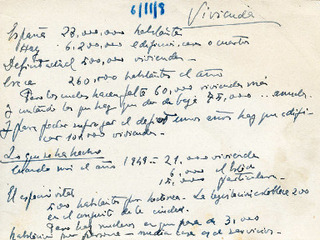 6/11/8
Vivienda
España 28,000,000 habitantes
Hay 6.200,000 edificios, con o cuartos
Deficit de 1,500,000 viviendas
Crece 260,000 habitantes al año
Para los cuales hacen falta 60,000 viviendas más
Y contando los que hay que dar de baja 75,000 anuales
Y para poder enjugar el deficit unos años hay que edificar 100,000 viviendas.
Lo que se ha hecho
el año 1949 - 21,000 vivienda
6,000
15,000 particulares
El espacio vital
500 habitantes por hectarea. La legislación 200
en el conjunto de la ciudad.
Para hay nucleos en que pasa de 3,000
habitantes por servicios